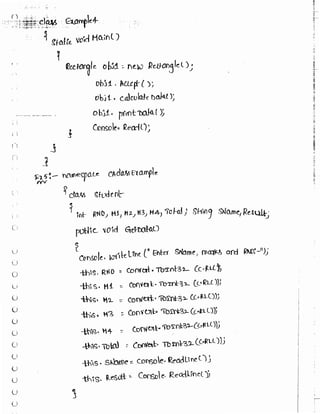 class Example4
{
static void Main()
{
Rectangle obj1 = new Rectangle();
obj1. Accept();
obj1. calculate Data();
obj1. print Data();
Console. Read();
}
}
}
Ex 5:- namespace CAClassExample
{
class Student
{
int RNO, M1, M2, M3, M4, Total; String SName, Result;
public void GetData()
{
Console. WriteLine("Enter SName, marks and RNO-");
this. RNO = Convert. ToInt32 (C.RL());
this. M1 = Convert. ToInt32 (C.RL());
this. M2 = Convert. ToInt32 (C.RL());
this. M3 = Convert. ToInt32 (C.RL());
this. M4 = Convert. ToInt32 (C.RL());
this. Total = Convert. ToInt32 (C.RL());
this. SName = Console. ReadLine();
this. Result = Console. ReadLine();
}